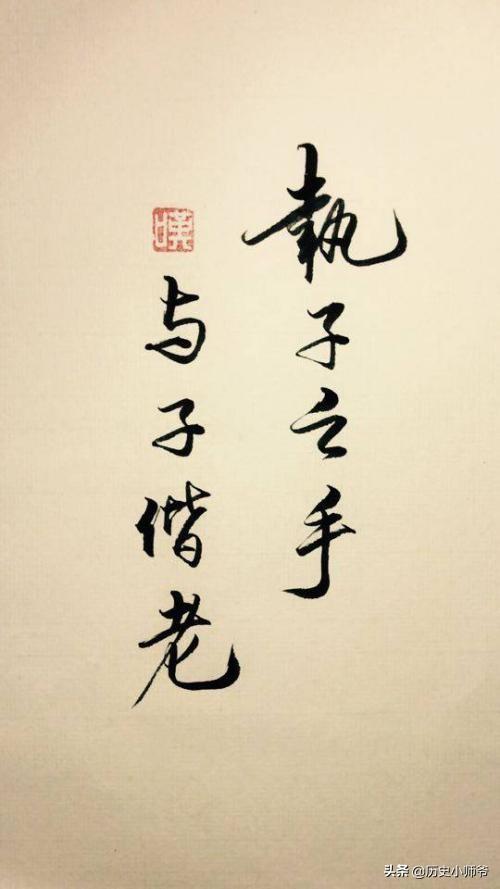 執子之手
与子偕老
头条 @历史小师爷